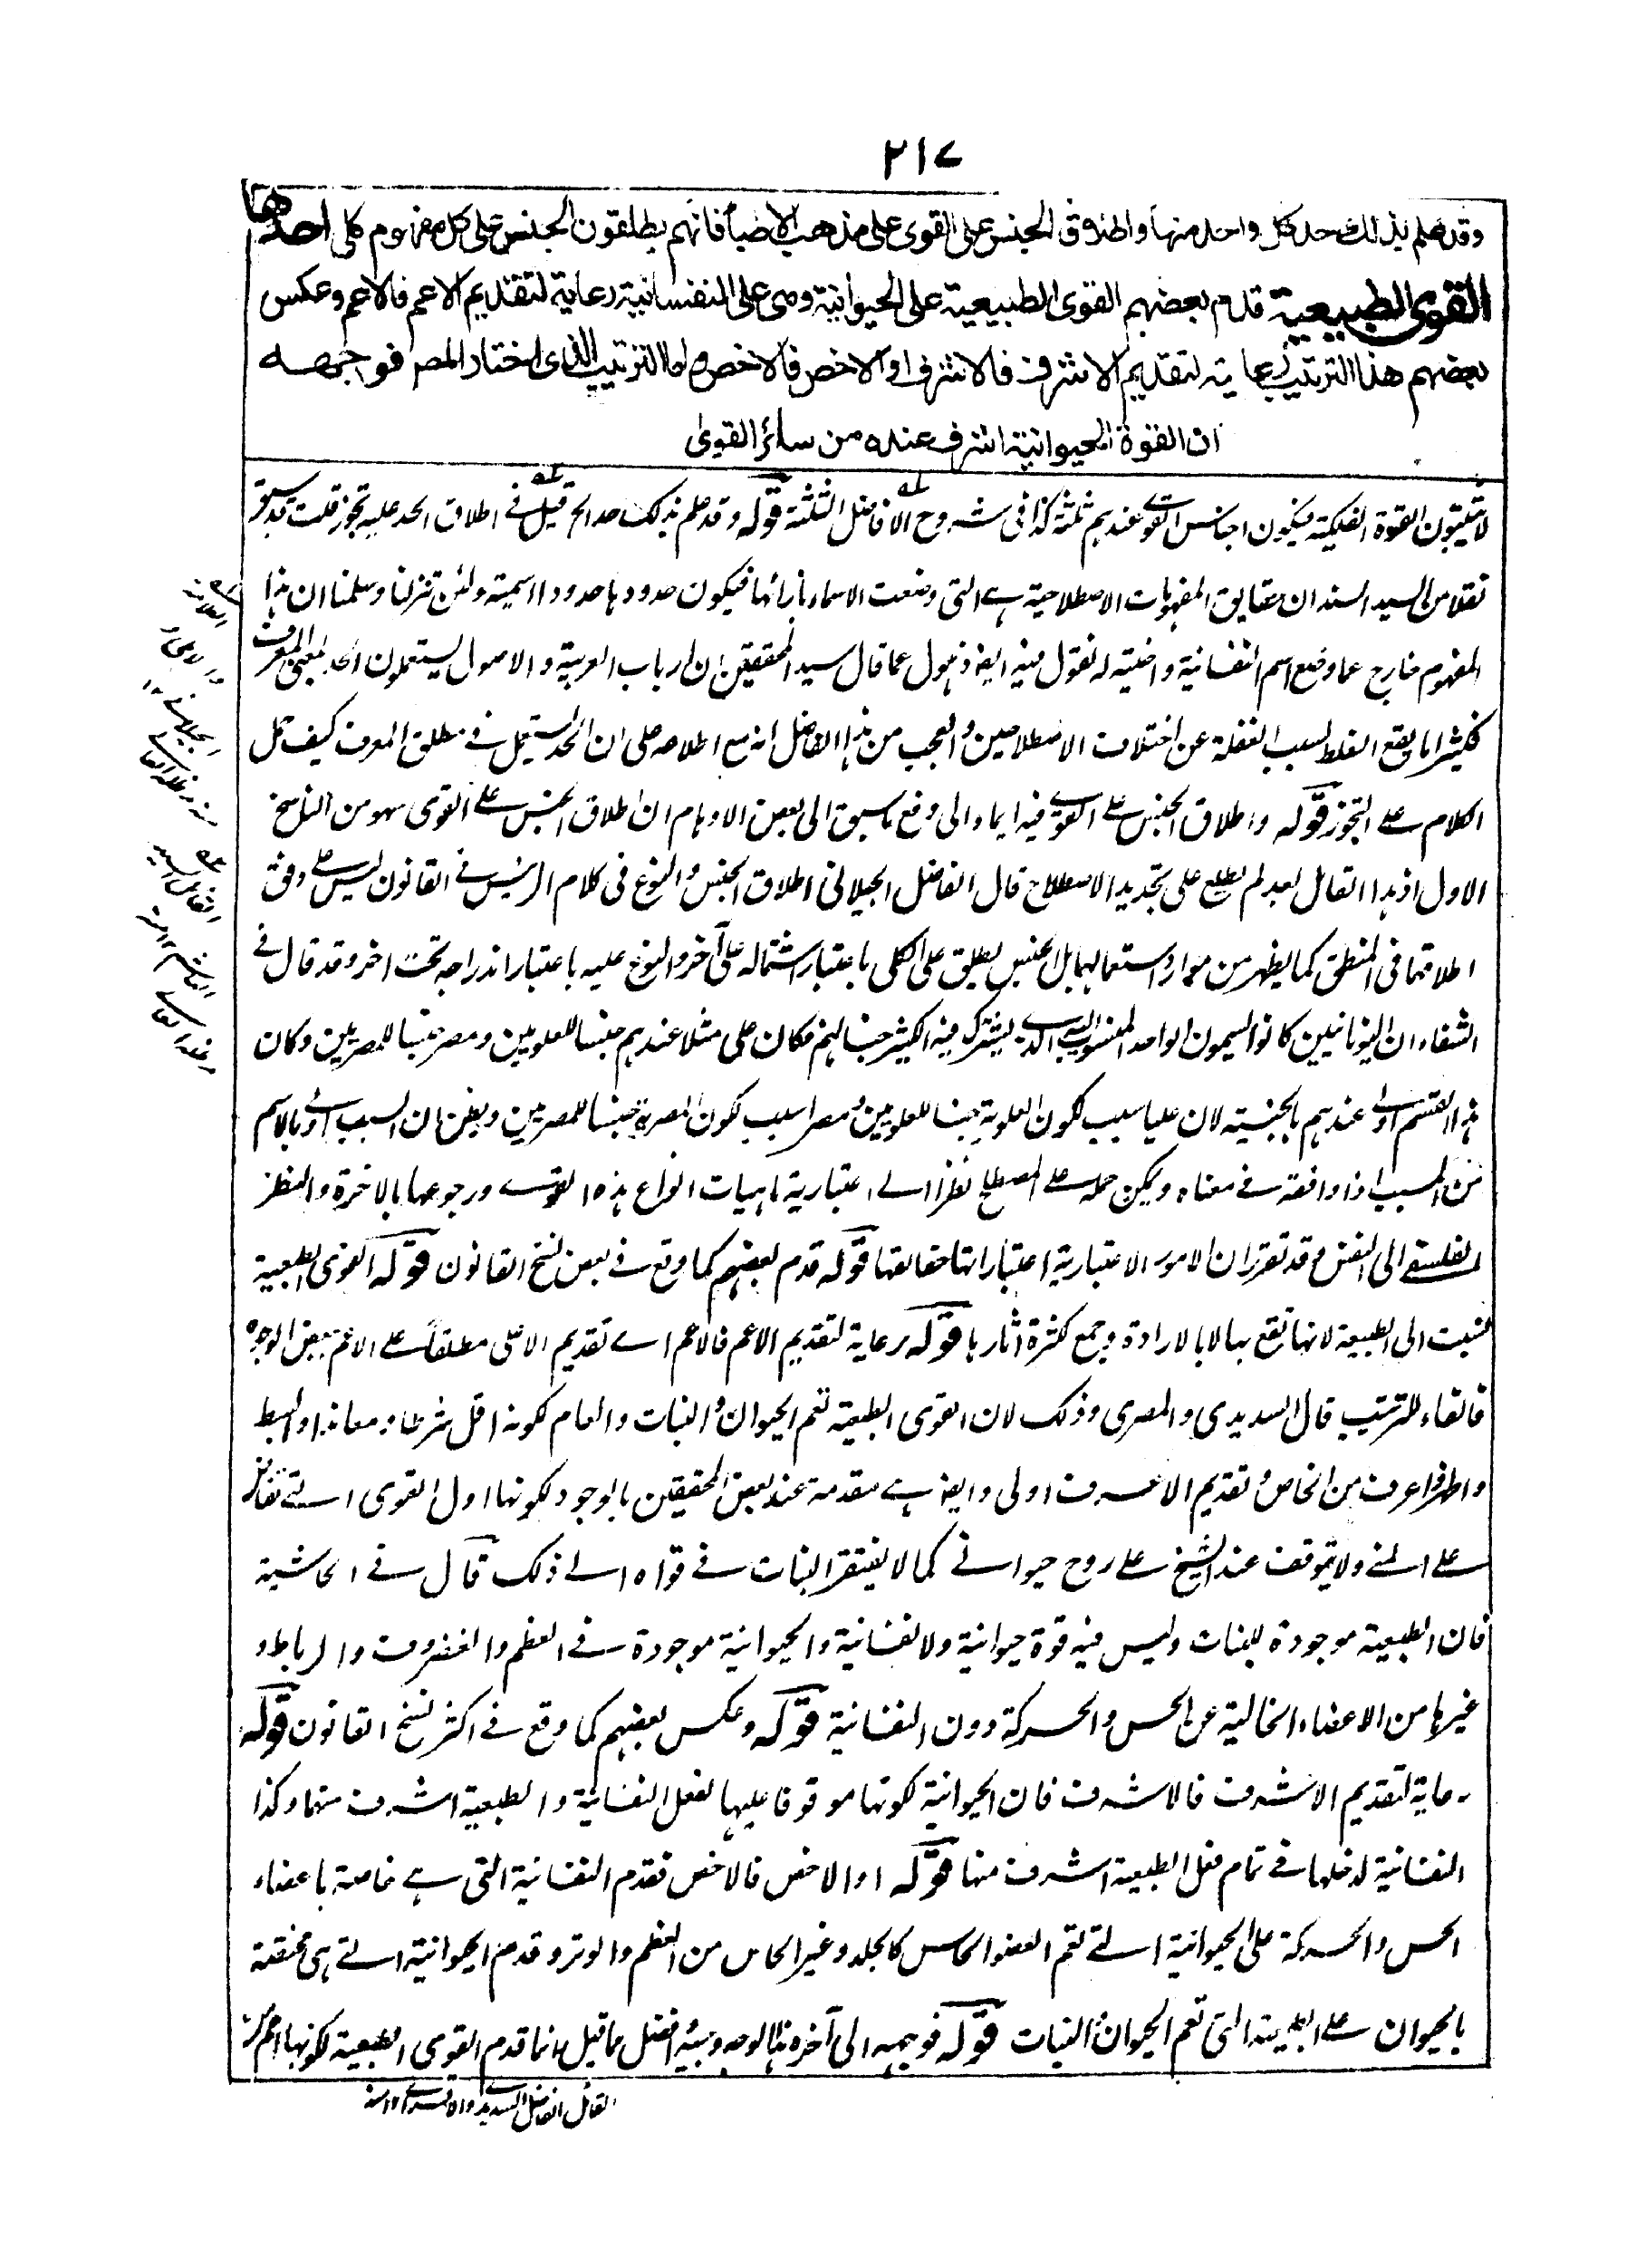 ٢١٧
وقد علم بذلك حد كل واحد منها واطلاق الجنس على القوى على مذهب الاطباء فانهم يطلقون الجنس على كل مفهوم كلى احدها
القوى الطبيعية قدم بعضهم القوى الطبيعية على الحيوانية وهى على النفسانية رعاية لتقديم الاعم فالاعم وعكس
بعضهم هذا الترتيب رعاية لتقديم الاشرف فالاشرف او الاخص فالاخص واما الترتيب الذى اختار المصـ فوجهه
ان القوة الحيوانية اشرف عنده من سائر القوى
لا يثبتون القوة الفلكية فيكون اجناس القوى عندهم ثلثة كذا فى شروح الافاضل الثلثة قوله وقد علم بذلك حد الخ قيل فى اطلاق الحد عليه تجوز قلت قد سبق
نقلا من السيد السند ان حقايق المفهومات الاصطلاحية هى التى وضعت الاسماء بازائها فيكون حدودها حدودا اسمية ولئن تنزلنا وسلمنا ان هذا
المفهوم خارج عما وضع اسم النفسانية واختيه له نقول فيه ايضا ذهول عما قال سيد المحققين ان ارباب العربية والاصول يستعملون الحد بمعنى المعرف
فكثيرا ما يقع الغلط بسبب الغفلة عن اختلاف الاصطلاحين والعجب من هذا الفاضل انه مع اطلاعه على ان الحد يستعمل فى مطلق المعرف كيف حمل
الكلام على التجوز قوله واطلاق الجنس على القوى فيه ايماء الى دفع ما سبق الى بعض الاوهام ان اطلاق الجنس على القوى سهو من الناسخ
الاول اذ هذا القائل بعد لم يطلع على تجديد الاصطلاح قال الفاضل الجيلانى اطلاق الجنس والنوع فى كلام الرئيس فى القانون ليس على وفق
اطلاقهما فى المنطق كما يظهر من موارد استعمالهما بل الجنس يطلق على الكلى باعتبار اشتماله على آخر والنوع عليه باعتبار اندراجه تحت اخر وقد قال فى
الشفاء ان اليونانيين كانوا يسمون الواحد المنسوب اليه الذى يشترك فيه الكثير جنسا لهم فكان على مثلا عندهم جنسا للعلويين ومصر جنسا للمصريين وكان
هذا القسم اولى عندهم بالجنسية لان عليا سبب لكون العلوية جنسا للعلويين ومصر سبب لكون المصرية جنسا للمصريين ويظن ان السبب اولى بالاسم
من المسبب اذا وافقه فى معناه ويمكن حمله على المصطلح نظرا الى اعتبارية ماهيات انواع هذه القوى ورجوعها بالاخرة والنظر
الفلسفى الى النفس وقد تقرر ان الامور الاعتبارية اعتباراتها حقائقها قوله قدم بعضهم كما وقع فى بعض نسخ القانون قوله القوى الطبيعية
نسبت الى الطبيعة لانها تقع بها لا بالارادة وجمع كثرة اثارها قوله رعاية لتقديم الاعم فالاعم اى تقديم الاعلى مطلقا على الاعم ببعض الوجوه
فالفاء للترتيب قال السديدى والمصرى وذلك لان القوى الطبيعية تعم الحيوان والنبات والعام لكونه اقل شرطا ومعاندا وابسط
واظهر اعرف من الخاص وتقديم الاعرف اولى وايضا هى مقدمة عند بعض المحققين بالوجود لكونها اول القوى التى تفائض
على المنى ولا يتوقف عند الشيخ على روح حيوانى كما لا يفتقر النبات فى قواه الى ذلك قال فى الحاشية
فان الطبيعية موجودة للنبات وليس فيه قوة حيوانية ولا نفسانية والحيوانية موجودة فى العظم والغضروف والرباط و
غيرها من الاعضاء الخالية عن الحس والحركة دون النفسانية قوله وعكس بعضهم كما وقع فى اكثر نسخ القانون قوله
رعاية لتقديم الاشرف فالاشرف فان الحيوانية لكونها موقوفا عليها لفعل النفسانية والطبيعية اشرف منهما وكذا
النفسانية لدخلها فى تمام فعل الطبيعية اشرف منها قوله او الاخص فالاخص فقدم النفسانية التى هى خاصة باعضاء
الحس والحركة على الحيوانية التى تعم العضو الحاس كالجلد وغير الحاس من العظم والوتر وقدم الحيوانية التى هى مختصة
بالحيوان على الطبيعية التى تعم الحيوان والنبات قوله فوجهه الى آخره هذا الوجه وجيه افضل مما قيل انما قدم القوى الطبيعية لكونها اعم
القائل الفاضل السديدى